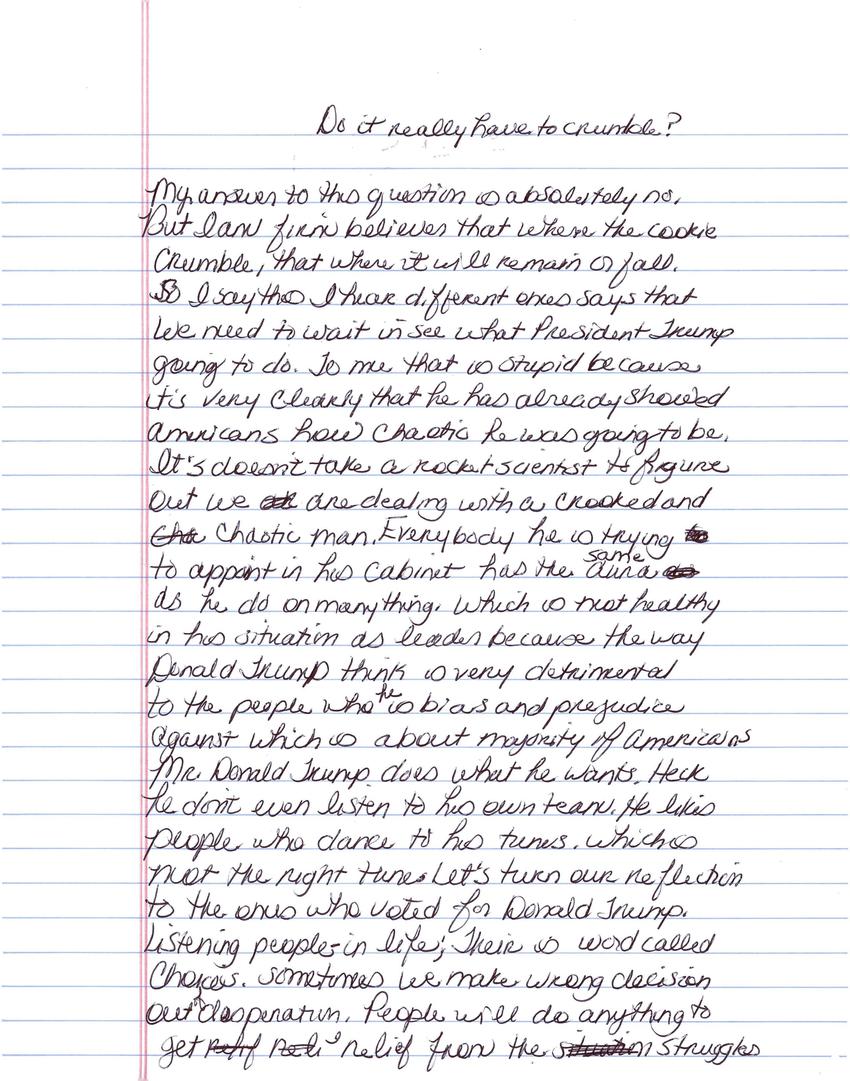 Do it really have to crumble?
My answer to this question is absolutely no.
But I am firm believer that where the cookie
Crumble, that where it will remain or fall.
So I say this I hear different ones says that
We need to wait in see what President Trump
going to do. To me that is stupid because
it's very clearly that he has already showed
Americans how chaotic he was going to be.
It's doesn't take a rocket scientist to figure
out we are dealing with a crooked and
Chaotic man. Everybody he is trying
to appoint in his cabinet has the same aura
as he do on many thing. Which is not healthy
in his situation as leader because the way
Donald Trump think is very detrimental
to the people who he is bias and prejudice
against which is about majority of Americans
Mr. Donald Trump does what he wants. Heck
he don't even listen to his own team. He likes
people who dance to his tunes. Which is
not the right tune. Let's turn our reflection
to the ones who voted for Donald Trump.
Listening people in life; Their is word called
Choices. Sometimes we make wrong decision
out of desperation. People will do anything to
get relief from the struggles